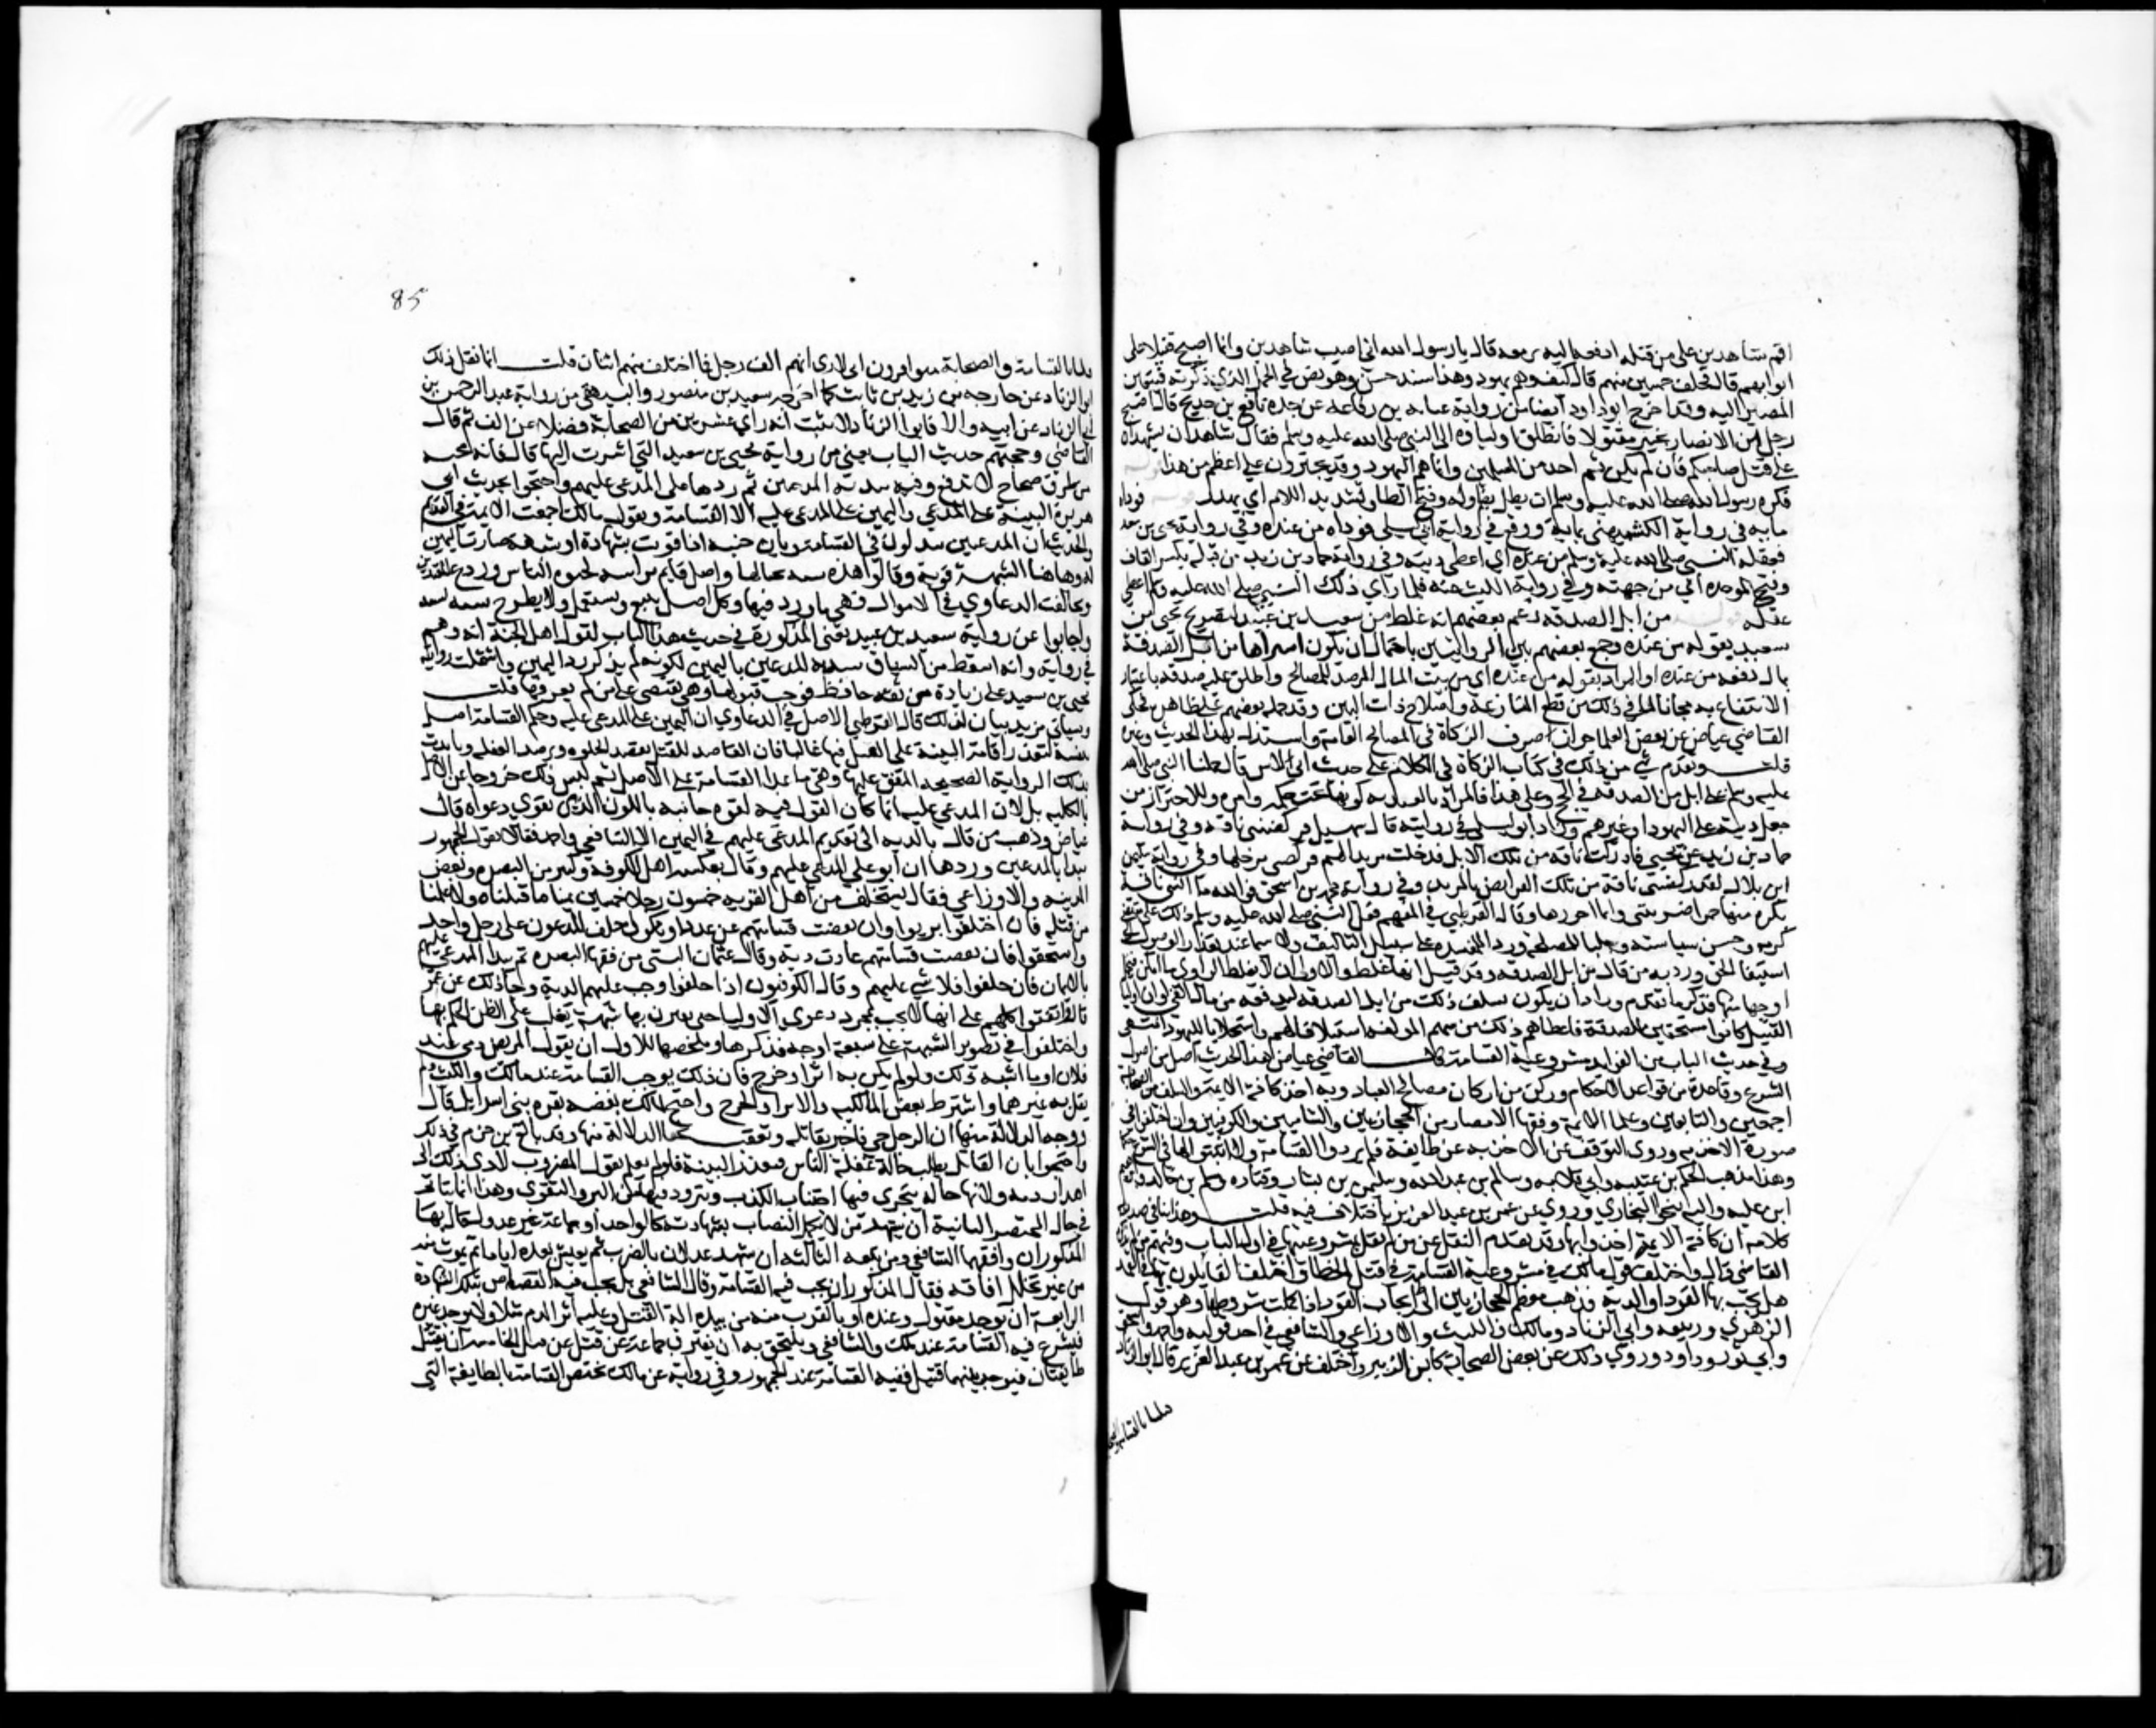 اقم شاهدين على من قتله ادفعه اليه برمته قال يا رسول الله اني اصيب شاهدين وانما اصبح قتيلا على
ابوابهم قال فتحلف خمسين منهم قال كيف وهم يهود وهذا سند حسن وهو نص في الحمل الذي ذكرته فتعين
المصير اليه وقد اخرج ابو داود ايضا من رواية عبايه بن رفاعة عن جده رافع بن خديج قال اصبح
رجل من الانصار بخيبر مقتولا فانطلق اولياوه الى النبي صلى الله عليه وسلم فقال شاهدان يشهدان
على قتل صاحبكم قال لم يكن ثم احد من المسلمين وانما هم اليهود وقد يجترون على اعظم من هذا
فكره رسول الله صلى الله عليه وسلم ان يطل بضم اوله وفتح الطا وتشديد اللام اي يهدر فوداه
مايه في رواية الكشميهني بماية ووقع في رواية ابي ليلى فوداه من عنده وفي رواية يحيى بن سعيد
فعقله النبي صلى الله عليه وسلم من عنده اي اعطى ديته وفي رواية حماد بن زيد من قبله بكسر القاف
وفتح الموحدة اي من جهته وفي رواية الليث عنه فلما راي ذلك النبي صلى الله عليه وسلم اعطى
عقله من ابل الصدقة زعم بعضهم انه غلط من سعيد بن عبيد لتصريح يحيى بن
سعيد بقوله من عنده وجمع بعضهم بين الروايتين باحتمال ان يكون اشتراها من ابل الصدقة
بمال دفعه من عنده او المراد بقوله من عنده اي من بيت المال المرصد للمصالح واطلق عليه صدقة باعتبار
الانتفاع به مجانا لما في ذلك من قطع المنازعة واصلاح ذات البين وقد حمله بعضهم على ظاهره فحكى
القاضي عياض عن بعض العلما جواز صرف الزكاة في المصالح العامة واستدل بهذا الحديث وغيره
قلت وتقدم شي من ذلك في كتاب الزكاة في الكلام على حديث ابي لاس قال حملنا النبي صلى الله
عليه وسلم على ابل من الصدقة في الحج وعلى هذا فالمراد بالعنديه كونها تحت حكمه وامره وللاحتراز من
جعل ديته على اليهود او غيرهم وزاد ابو ليلى في روايته قال سهيل فركضتني ناقة وفي رواية
حماد بن زيد عن يحيى فادركت ناقة من تلك الابل فدخلت مربدا لهم فركضتني برجلها وفي رواية سليمن
ابن بلال لقد ركضتني ناقة من تلك الفرايض بالمربد وفي رواية محمد بن اسحق فوالله ما انسى ناقة
بكرة منها حمرا ضربتني وانا احوزها وقال القرطبي في المفهم فعل النبي صلى الله عليه وسلم ذلك على مقتضى
كرمه وحسن سياسته وجلبا للمصلحة ودرءا للمفسدة على سبيل التاليف ولا سيما عند تعذر الوصول الى
استيفا الحق ورواية من قال من ابل الصدقة وقد قيل انها غلط والاولى ان لا يغلط الراوي ما امكن فيحتمل
اوجها منها فذكر ما تقدم وزاد ان يكون تسلف ذلك من ابل الصدقة ليدفعه من مال الفي او ان اوليا
القتيل كانوا مستحقين للصدقة فاعطاهم ذلك من سهم المولفه استيلافا لهم واستجلابا لليهود انتهى
وفي حديث الباب من الفوايد مشروعية القسامة قال القاضي عياض هذا الحديث اصل من اصول
الشرع وقاعدة من قواعد الاحكام وركن من اركان مصالح العباد وبه اخذ كافة الايمة والسلف من الصحابة
اجمعين والتابعين وعلما الايمة وفقها الامصار من الحجازيين والشاميين والكوفيين وان اختلفوا في
صورة الاخذ به وروي التوقف عن الاخذ به عن طايفة فلم يردوا القسامة ولا اثبتوا لها في الشرع حكما
وهذا مذهب الحكم بن عتيبه وابي قلابه وسالم بن عبد الله وسليمن بن يسار وقتاده ومسلم بن خالد وابراهيم
ابن عليه واليه ينحو البخاري وروي عن عمر بن عبد العزيز باختلاف فيه قلت وهذا ينافي صدر
كلامه ان كافة الايمة اخذوا بها وقد تقدم النقل عن من لم يقل بمشروعيتها في اول الباب وفيهم من
القاضي قال واختلف قول مالك في مشروعية القسامة في قتل الخطا واختلف القايلون بها في العمد
هل يجب بها القود او الدية فذهب معظم الحجازيين الى ايجاب القود اذا كملت شروطها وهو قول
الزهري وربيعه وابي الزناد ومالك والليث والاوزاعي والشافعي في احد قوليه واحمد واسحق
وابي ثور وداود وروي ذلك عن بعض الصحابة كابن الزبير واختلف عن عمر بن عبد العزيز قال ابو الزناد
قتلنا بالقسامة
85
قتلنا بالقسامة والصحابة متوافرون اني لارى انهم الف رجل فما اختلف منهم اثنان قلت انما نقل ذلك
ابو الزناد عن خارجه بن زيد بن ثابت كما اخرجه سعيد بن منصور والبيهقي من رواية عبد الرحمن بن
ابي الزناد عن ابيه والا فابو الزناد لا يثبت انه راي عشرين من الصحابة فضلا عن الف ثم قال
القاضي وحجتهم حديث الباب يعني من رواية يحيى بن سعيد التي اشرت اليها قال فانه مجيه
من طرق صحاح لا يدفع وفيه تبدية المدعين ثم ردها على المدعى عليهم واحتجوا بحديث ابي
هريرة البينة على المدعي واليمين على المدعى عليه الا القسامة وبقول مالك اجمعت الايمة في القديم
والحديث ان المدعين يبدون في القسامة وبان جنبه اذا قويت بشهادة او شبهة صارت اليمين
له وهاهنا الشبهة قوية وقالوا هذه سنة بحيالها واصل قايم براسه لحيوة الناس وردع المعتدين
وخالفت الدعاوي في الاموال فهي على ما ورد فيها وكل اصل يتبع ويستعمل ولا يطرح سنة لسنة
واجابوا عن رواية سعيد بن عبيد يعني المذكورة في حديث هذا الباب بقول اهل الحديث انه وهم
في روايته وانه اسقط من السياق تبدية المدعين باليمين لكونه لم يذكر رد اليمين واشتملت رواية
يحيى بن سعيد على زيادة من ثقة حافظ فوجب قبولها وهي تقضي على من لم يعرفها قلت
وسياتي مزيد بيان لذلك قال القرطبي الاصل في الدعاوي ان اليمين على المدعى عليه وحكم القسامة اصل
بنفسه لتعذر اقامة البينة على القتل فيها غالبا فان القاصد للقتل يقصد الخلوة ويترصد الغفلة وتايدت
بذلك الرواية الصحيحة المتفق عليها وبقي ما عدا القسامة على الاصل ثم ليس ذلك خروجا عن الاصل
بالكليه بل لان المدعى عليه انما كان القول قوله لقوه جانبه باللوث الذي يقوي دعواه قال
عياض وذهب من قال بالدية الى تقديم المدعى عليهم في اليمين الا الشافعي واحمد فقالا بقول الجمهور
يبدا بالمدعين وردها ان ابوا على المدعى عليهم وقال بعكسه اهل الكوفة وكثير من البصره وبعض
المدينه والاوزاعي فقال يستحلف من اهل القريه خمسون رجلا خمسين يمينا ما قتلناه ولا علمنا
من قتله فان حلفوا بريوا وان نقصت قسامتهم عن عدد او نكول حلف المدعون على رجل واحد
واستحقوا فان نقصت قسامتهم عادت دية وقال عثمان البتي من فقها البصره ثم يبدا المدعى عليهم
بالايمان فان حلفوا فلا شي عليهم وقال الكوفيون اذا حلفوا وجب عليهم الدية وجا ذلك عن عمر
قال واتفقوا كلهم على انها لا تجب بمجرد دعوى الاوليا حتى يقترن بها شبهة يغلب على الظن الحكم بها
واختلفوا في تصوير الشبهة على سبعة اوجه فذكرها وملخصها الاول ان يقول المريض دمي عند
فلان او ما اشبه ذلك ولو لم يكن به اثر او جرح فان ذلك يوجب القسامة عند مالك والليث ولم
يقل به غيرهما واشترط بعض المالكيه الاثر او الجرح واحتج لمالك بقصة بقرة بني اسرايل قال
ووجه الدلالة منها ان الرجل حي فاخبر بقاتله وتعقب بخفا الدلالة منها وقد بالغ بن حزم في ذلك
واحتجوا بان القاتل يطلب حالة غفلة الناس فتتعذر البينة فلو لم يعمل بقول المضروب لادى ذلك الى
اهدار دمه ولانها حاله يتحرى فيها اجتناب الكذب ويتزود فيها من البر والتقوى وهذا انما ياتي
في حال المحتضر الثانية ان يشهد من لا يكمل النصاب بشهادته كالواحد او جماعة غير عدول قال بها
المذكوران ووافقهما الشافعي ومن تبعه الثالثه ان يشهد عدلان بالضرب ثم يعيش بعده اياما ثم يموت منه
من غير تخلل افاقة فقال المذكوران يجب فيه القسامة وقال الشافعي بل يجب فيه القصاص بتلك الشهادة
الرابعة ان يوجد مقتول وعنده او بالقرب منه من بيده الة القتل وعليه اثر الدم مثلا ولا يوجد غيره
فيشرع فيه القسامة عند ملك والشافعي ويلتحق به ان يفترق جماعة عن قتيل الخامسة ان يقتتل
طايفتان فيوجد بينهما قتيل ففيه القسامة عند الجمهور وفي رواية عن مالك تختص القسامة بالطايفة التي